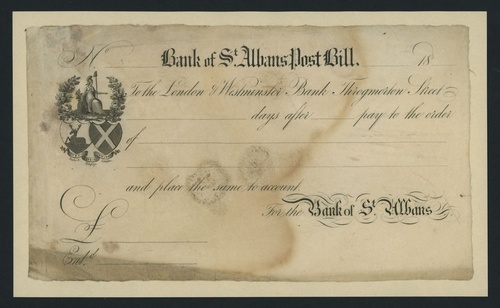 No Bank of St. Albans Post Bill. 18
To the London & Westminster Bank Throgmorton Street
days after pay to the order
of
and place the same to account
For the Bank of St. Albans &c
£
Entd.